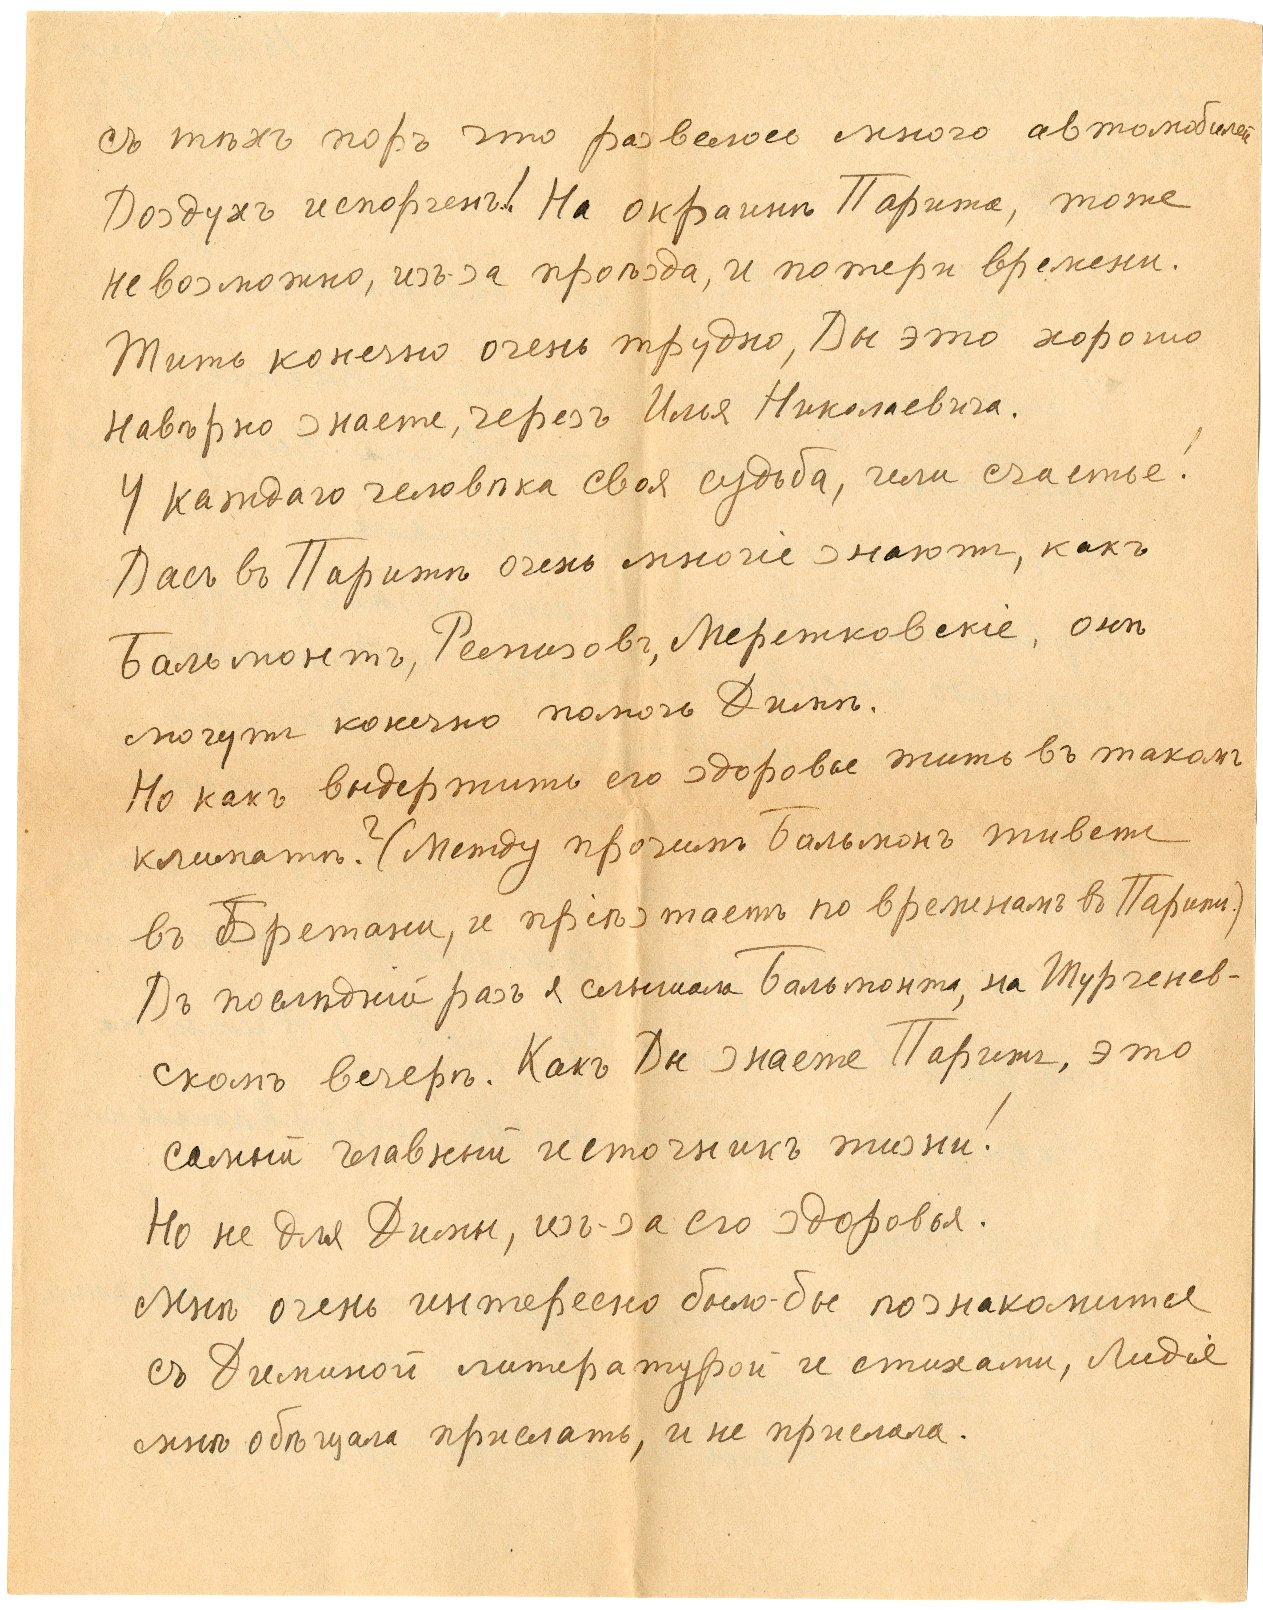 съ тѣхъ поръ что развелось много автомобилей
Воздухъ испорченъ! На окраинѣ Парижа, тоже
невозможно, изъ-за проѣзда, и потери времени.
Жить конечно очень трудно, Вы это хорошо
навѣрно знаете, черезъ Илья Николаевича.
У каждаго человѣка своя судьба, или счастье!
Васъ въ Парижѣ очень многіе знаютъ, какъ
Бальмонтъ, Ремизовъ, Мережковскіе, онѣ
могутъ конечно помочь Димѣ.
Но какъ выдержить его здоровье жить въ такомъ
климатѣ? (Между прочимъ Бальмонъ живетъ
въ Бретани, и пріѣзжаетъ по временамъ въ Парижъ.)
Въ послѣдній разъ я слышала Бальмонта, на Тургенев-
скомъ вечерѣ. Какъ Вы знаете Парижъ, это
самый главный источникъ жизни!
Но не для Димы, изъ-за его здоровья.
Мнѣ очень интересно было-бы познакомится
съ Диминой литературой и стихами, Лидія
мнѣ обѣщала прислать, и не прислала.